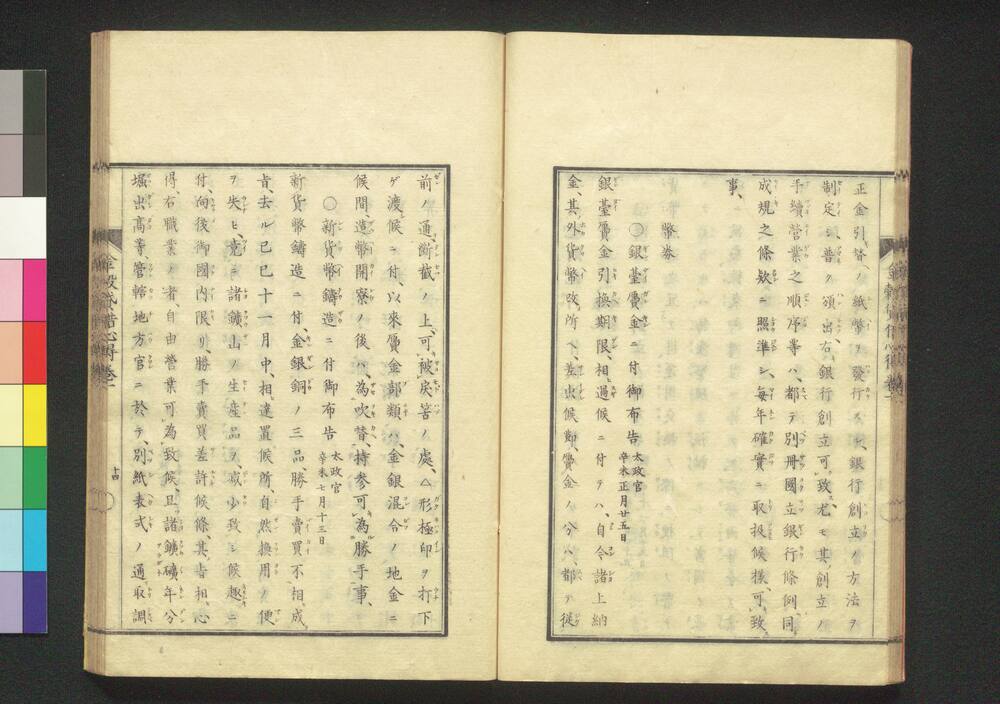 正金引替ノ紙幣ヲ發行ス、銀行創立ノ方法ヲ
制定シ普ク頒出、右銀行創立可致、尤モ其創立ノ
手續營業之順序等ハ、都テ別冊國立銀行條例、同
成規之條欵ニ照準シ、毎年確實ニ取扱候樣、可致
事、
幣券
〇銀臺贋金ニ付御布告 太政官 辛未正月廿五日
銀臺贋金引換期限、相過候ニ付テハ、自今諸上納
金、其外貨幣改所ヘ、差出候節、贋金ノ分ハ、都テ從
前ノ通斷截ノ上、可被戾筈ノ處、△形極印ヲ打下
ゲ渡候ニ付、以來贋金部類ハ、金銀混合ノ地金ニ
候間、造幣開寮ノ後ハ、為吹替、持参可為勝手事、
〇新貨幣鑄造ニ付御布告 太政官 辛未七月十三日
新貨幣鑄造ニ付、金銀銅ノ三品、勝手賣買不相成
旨、去ル己巳十一月中、相達置候所、自然換用ノ便
ヲ失ヒ、竟ニ諸鑛山ノ生産品ヲ減少致シ候趣ニ
付、向後御國内限リ、勝手賣買差許候條、其旨相心
得、右職業ノ者、自由營業可為致候、且諸鑛礦年分
堀出高等、管轄地方官ニ於テ、別紙表式ノ通取調
金穀貸借心得卷二
十四